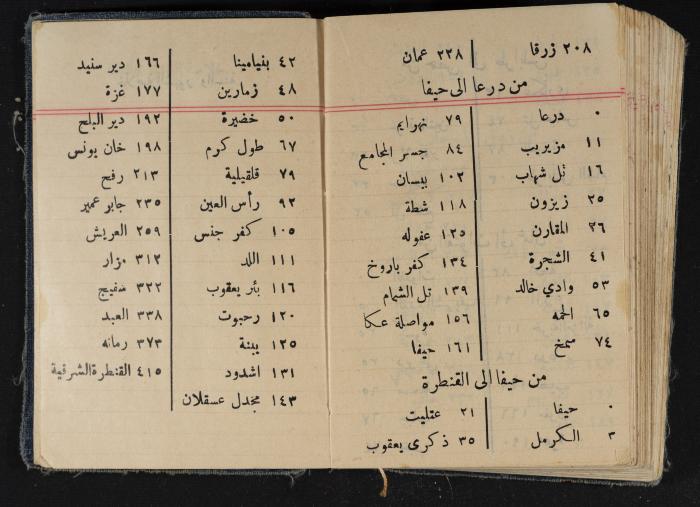 ٢٠٨ زرقا
٢٢٨ عمان
من درعا الى حيفا
٠ درعا
١١ مزيريب
١٦ تل شهاب
٢٥ زيزون
٣٦ المقارن
٤١ الشجرة
٥٣ وادي خالد
٦٥ الحمه
٧٤ سمخ
٧٩ نهرايم
٨٤ جسر المجامع
١٠٢ بيسان
١١٨ شطة
١٢٥ عفوله
١٣٤ كفر باروخ
١٣٩ تل الشمام
١٥٦ مواصلة عكا
١٦١ حيفا
من حيفا الى القنطرة
٠ حيفا
٣ الكرمل
٢١ عتليت
٣٥ ذكرى يعقوب
٤٢ بنيامينا
٤٨ زمارين
٥٠ خضيرة
٦٧ طول كرم
٧٩ قلقيلية
٩٢ رأس العين
١٠٥ كفر جنس
١١١ اللد
١١٦ بئر يعقوب
١٢٠ رحبوت
١٢٥ يبنة
١٣١ اشدود
١٤٣ مجدل عسقلان
١٦٦ دير سنيد
١٧٧ غزة
١٩٢ دير البلح
١٩٨ خان يونس
٢١٣ رفح
٢٣٥ جابو عمير
٢٥٩ العريش
٣١٢ مزار
٣٢٢ مفيج
٣٣٨ العبد
٣٧٣ رمانه
٤١٥ القنطرة الشرقية